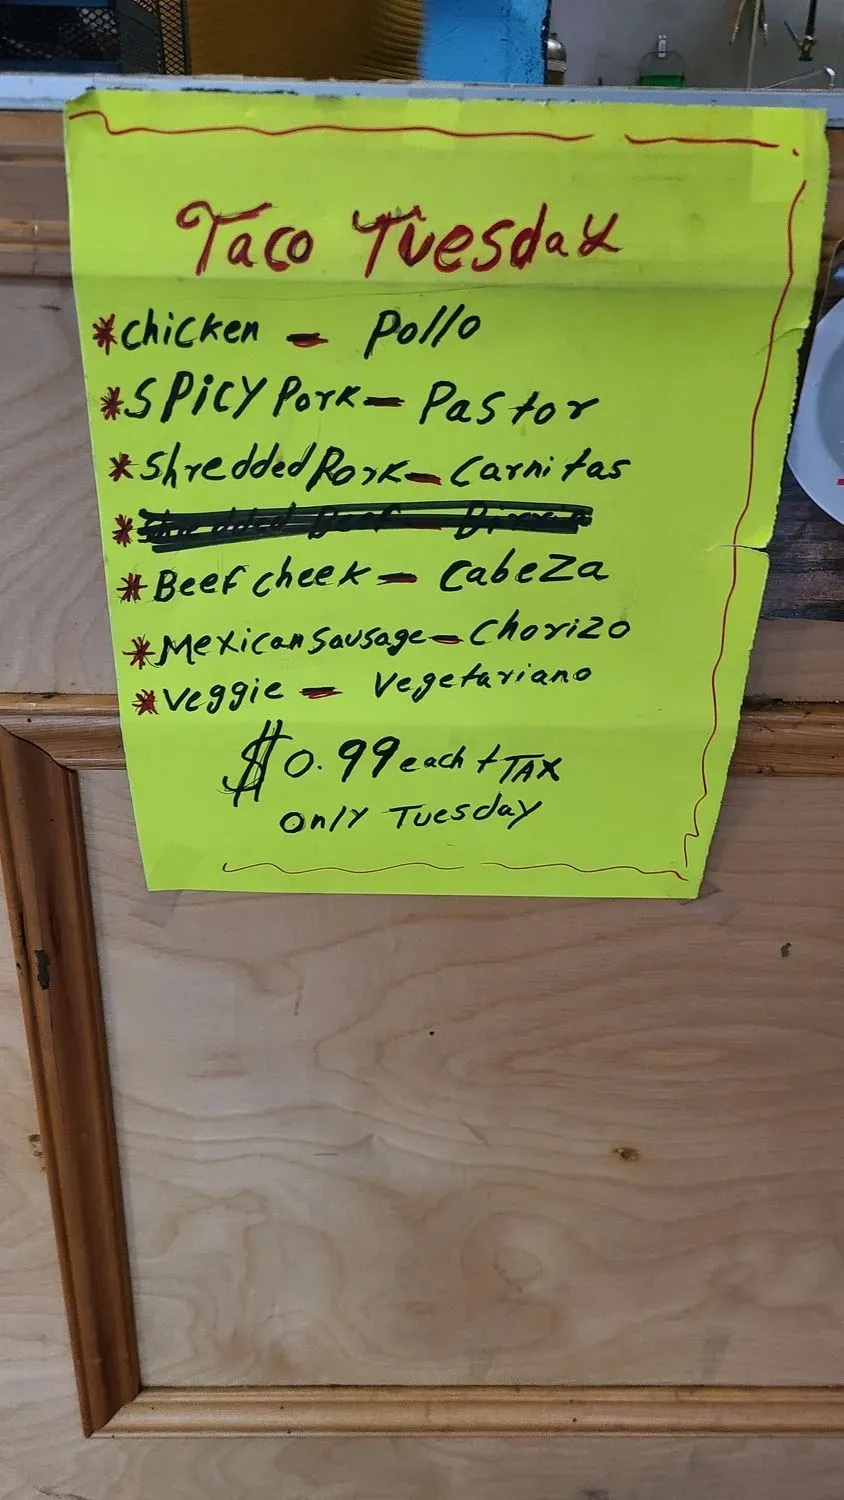 Taco Tuesday
*chicken - Pollo
*SPicY Pork - Pastor
*Shredded Pork - Carnitas
*Beef cheek - Cabeza
*Mexican Sausage - Chorizo
*Veggie - Vegetariano
$0.99 each + TAX
only Tuesday